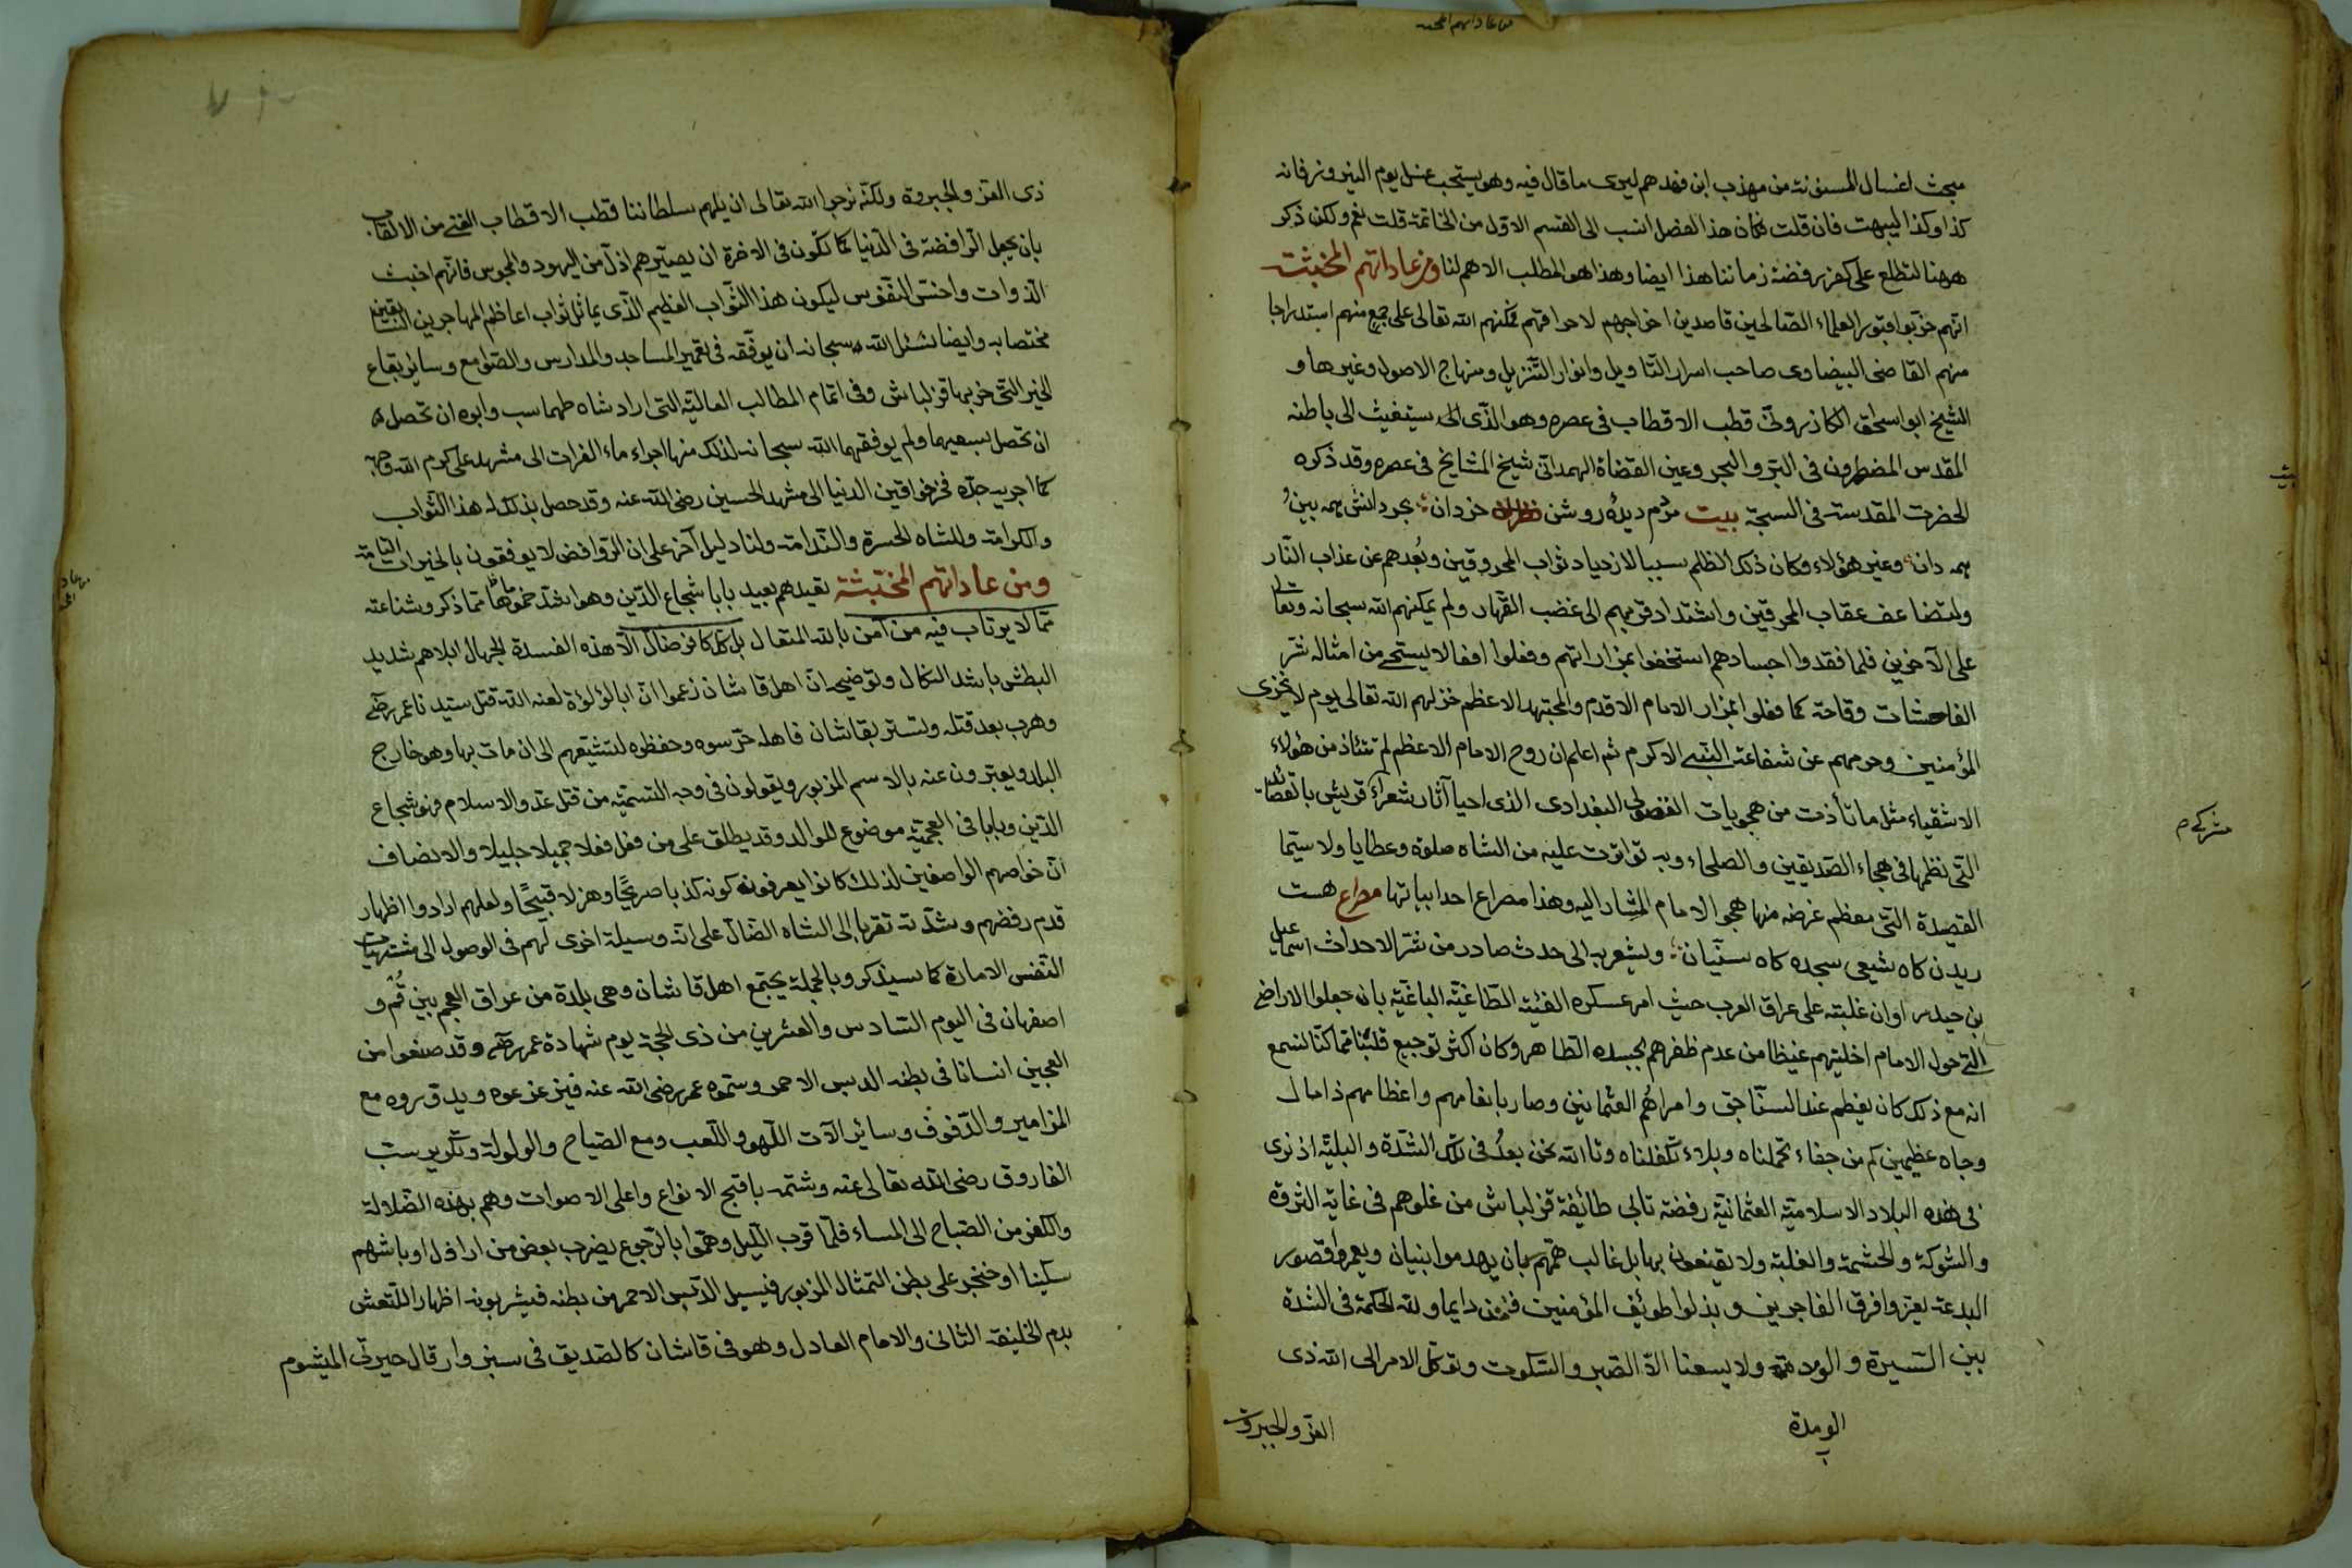 من عاداتهم المخبثة
مبحث اغسال المسنونة من مهذب ابن فهدهم ليرى ما قال فيه وهو يستحب غسل يوم النيروز فانه
كذا وكذا ليبهت فان قلت فكان هذا الفصل انسب الى القسم الاول من الخاتمة قلت نعم ولكن ذكر
ههنا لتطلع على كفر رفضة زماننا هذا ايضا وهذا هو المطلب الاهم لنا ومن عاداتهم المخبثة
انهم خربوا قبور العلماء الصالحين قاصدين اخراجهم لاحراقهم فمكنهم الله تعالى على جمع منهم استدراجا
منهم القاضى البيضاوى صاحب اسرار التاويل وانوار التنزيل ومنهاج الاصول وغيرها و
الشيخ ابو اسحق الكازرونى قطب الاقطاب فى عصره وهو الذى الى يستغيث الى باطنه
المقدس المضطرون فى البر والبحر وعين القضاة الهمدانى شيخ المشايخ فى عصره وقد ذكره
الحضرت المقدسة فى السبحة بيت مردم ديدۀ روشن خردان بجز دانش همه بين و
همه دان وغير هؤلاء وكان ذلك الظلم سببا لازدياد ثواب المحروقين وبُعدهم عن عذاب النار
ولتضاعف عقاب المحرقين واشتداد قربهم الى غضب القهار ولم يمكنهم الله سبحانه وتعالى
على الآخرين فلما فقدوا اجسادهم استخفوا بمزاراتهم وفعلوا افعالا يستحى من امثاله شر
الفاحشات وقاحة كما فعلوا بمزار الامام الاقدم والمجتهد الاعظم خذلهم الله تعالى يوم لا يخزى
المؤمنين وحرمهم عن شفاعة النبى الاكرم ثم اعلم ان روح الامام الاعظم لم تتأذ من هؤلاء
الاشقياء مثل ما تأذت من هجويات الفضولى البغدادى الذى احيا آثار شعراء قريش بالقصائد
التى نظمها فى هجاء الصديقين والصلحاء وبه تواترت عليه من الشاه صلوة وعطايا ولا سيما
القصيدة التى معظم غرضه منها هجو الامام المشار اليه وهذا مصراع احد ابياتها مصراع هست
ريدن كاه شيعى سجده كاه سنيان ويشعر به الى حدث صادر من شر الاحداث اسماعيل
بن حيدر اوان غلبته على عراق العرب حيث امر عسكره الفئية الطاغية الباغية بان جعلوا الاراضى
التى حول الامام اخليتهم غيظا من عدم ظفرهم بجسده الطاهر وكان اكثر توجيع قلبنا مما كنا نسمع
انه مع ذلك كان يعظم عند السناجق وامراهُم العثمانين وصار بانعامهم واعظامهم ذا مال
وجاه عظيمين كم من جفاء تحملناه وبلاء تكفلناه وتالله نحن بعدُ فى تلك الشدة والبلية اذ نرى
فى هذه البلاد الاسلامية العثمانية رفضة تابى طائفة قزلباش من غلوهم فى غاية الثروة
والشوكة والحشمة والغلبة ولا يقنعون بها بل غالب همهم بان يهدموا بنيان ويعمروا قصور
البدعة يعزوا فرق الفاجرين ويذلوا طوئف المؤمنين فنحن دايما ولله الحكمة فى الشدة
بين السيرة والومدة ولا يسعنا الا الصبر والسكوت وتوكل الامر الى الله ذى
الومدة
العز والجبروت
بيت
مشركے م
ذى العز والجبروة ولكنه نرجوا الله تعالى ان يلهم سلطاننا قطب الاقطاب الغنى من الالقاب
بان يجعل الرافضة فى الدنيا كما تكون فى الاخرة ان يصيرهم اذل من اليهود والمجوس فانهم اخبث
الذوات واخس النفوس ليكون هذا الثواب العظيم الذى يماثل ثواب اعاظم المهاجرين السابقين
مختصا به وايضا نسئل الله سبحانه ان يوفقه فى تعمير المساجد والمدارس والصوامع وسائر بقاع
الخير التى خربها قزلباش وفى اتمام المطالب العالية التى اراد شاه طهماسب وابوه ان تحصل
ان تحصل بسعيهما ولم يوفقهما الله سبحانه لذلك منها اجراء ماء الفرات الى مشهد على كرم الله وجهه
كما اجرى به جده فخر خواقين الدنيا الى مشهد الحسين رضى الله عنه وقد حصل بذلك له هذا الثواب
والكرامة وللشاه الحسرة والندامة ولنا دليل آخر على ان الروافض لا يوفقون بالخيرات التامة
ومن عاداتهم المخبثة تعيدهم بعيد بابا شجاع الدين وهو اشد مما ذكر وشناعته
مما لا يرتاب فيه من آمن بالله المتعال بل كل كافر ضال الا هذه الفسدة الجهال ابلاهم شديد
البطش باشد النكال وتوضيحه ان اهل قاشان زعموا ان ابا لؤلؤة لعنه الله قتل سيدنا عمر رضى
وهرب بعد قتله وتستر بقاشان فاهله حرسوه وحفظوه لتشيعهم الى ان مات بها وهو خارج
البلد ويعبرون عنه بالاسم المزبور ويقولون فى وجه التسمية من قتل عدو الاسلام فهو شجاع
الدين وبابا فى العجمية موضوع للوالد وقد يطلق على من فعل فعلا جميلا جليلا والانصاف
ان خواصهم الواصفين لذلك كانوا يعرفون كونه كذبا صريحًا وهزلا قبيحًا ولعلهم ارادوا اظهار
قدم رفضهم وشدته تقربا الى الشاه الضال على انه وسيلة اخرى لهم فى الوصول الى مشتهيات
النفس الامارة كما سيذكر وبالجملة يجتمع اهل قاشان وهى بلدة من عراق العجم بين قُم و
اصفهان فى اليوم السادس والعشرين من ذى الحجة يوم شهادة عمر رضى وقد صنعوا من
العجين انسانا فى بطنه الدبس الاحمر وسموه عمر رضى الله عنه فيزعزعوه ويدوروه مع
المزامير والدفوف وسائر الآت اللهو واللعب ومع الصياح والولولة وتكرير سب
الفاروق رضى الله تعالى عنه وشتمه باقبح الانواع واعلى الاصوات وهم بهذه الضلالة
والكفر من الصباح الى المساء فلما قرب الليل وهموا بالرجوع يضرب بعض من اراذل اوباشهم
سكينا او خنجر على بطن التمثال المزبور فيسيل الدبس الاحمر من بطنه فيشربونه اظهارا للتعش
بدم الخليفة الثانى والامام العادل وهو فى قاشان كالصديق فى سبزوار قال حيرتى الميشوم